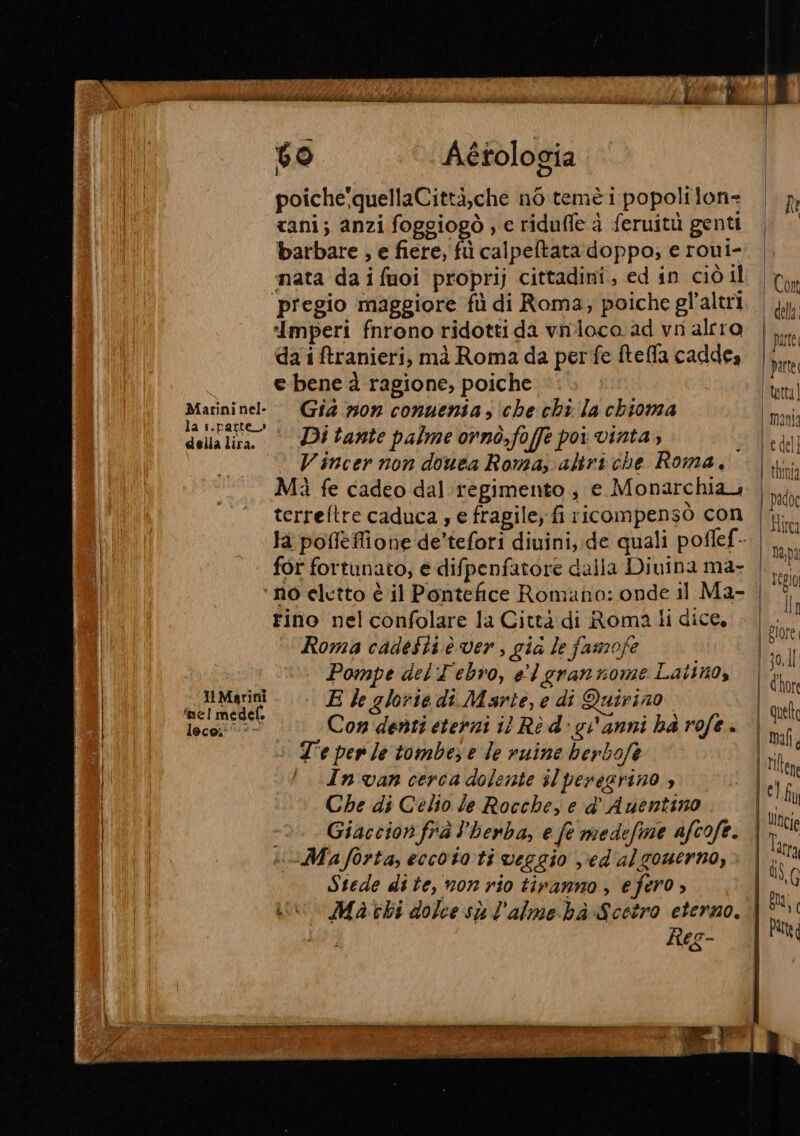 60 Aêtologia
poiche'quellaCittà,che nõ temè i popoli lon-
tani; anzi soggiogò , e ridusse à seruitù genti
barbare , e fiere, fù calpestata doppo, e roui-
nata da i suoi proprij cittadini, ed in ciò il
pregio maggiore fù di Roma, poiche gl'altri
Imperi furono ridotti da vn loco ad vn altro
da i stranieri, mà Roma da per se stessa cadde,
e bene à ragione, poiche
Marini nel-
la 1.parte
della lira.
Già non conuenia, che chi la chioma
Di tante palme ornò,fosse poi vinta,
Vincer non douea Roma, altri che Roma.
Mà se cadeo dal regimento , e Monarchia
terrestre caduca , e fragile, si ricompensò con
la possessione de'tesori diuini, de quali posses-
sor fortunato, e dispensatore dalla Diuina ma-
no eletto è il Pontefice Romano: onde il Ma-
rino nel consolare la Città di Roma li dice.
Il Marini
nel medes.
loco.
Roma cadesti è ver , già le famose
Pompe del Tebro, e'l gran nome Latino,
E le glorie di Marte, e di Quirino
Con denti eterni il Rè d gl'anni hà rose.
Te per le tombe, e le ruine herbose
In van cerca dolente il peregrino ,
Che di Celio le Rocche, e d'Auentino
Giaccion frà l'herba, e se medesme ascose.
Ma sorta, eccoto ti veggio , ed al gouerno,
Siede di te, non rio tiranno , e fero ,
Mà chi dolce sù l'alme hà Scetro eterno.
Reg-